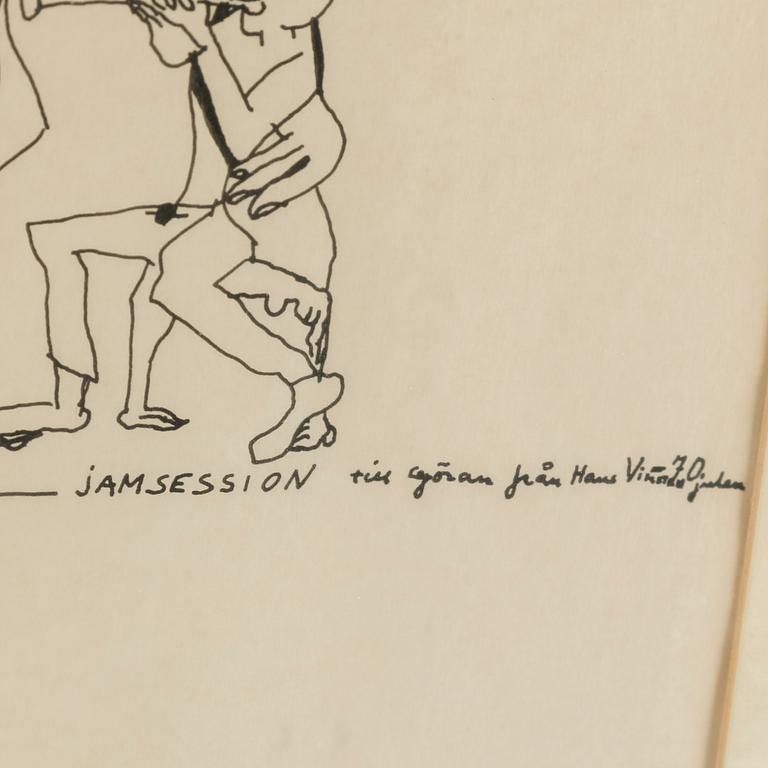 JAMSESSION till Göran från Hans Viksten 70 julen